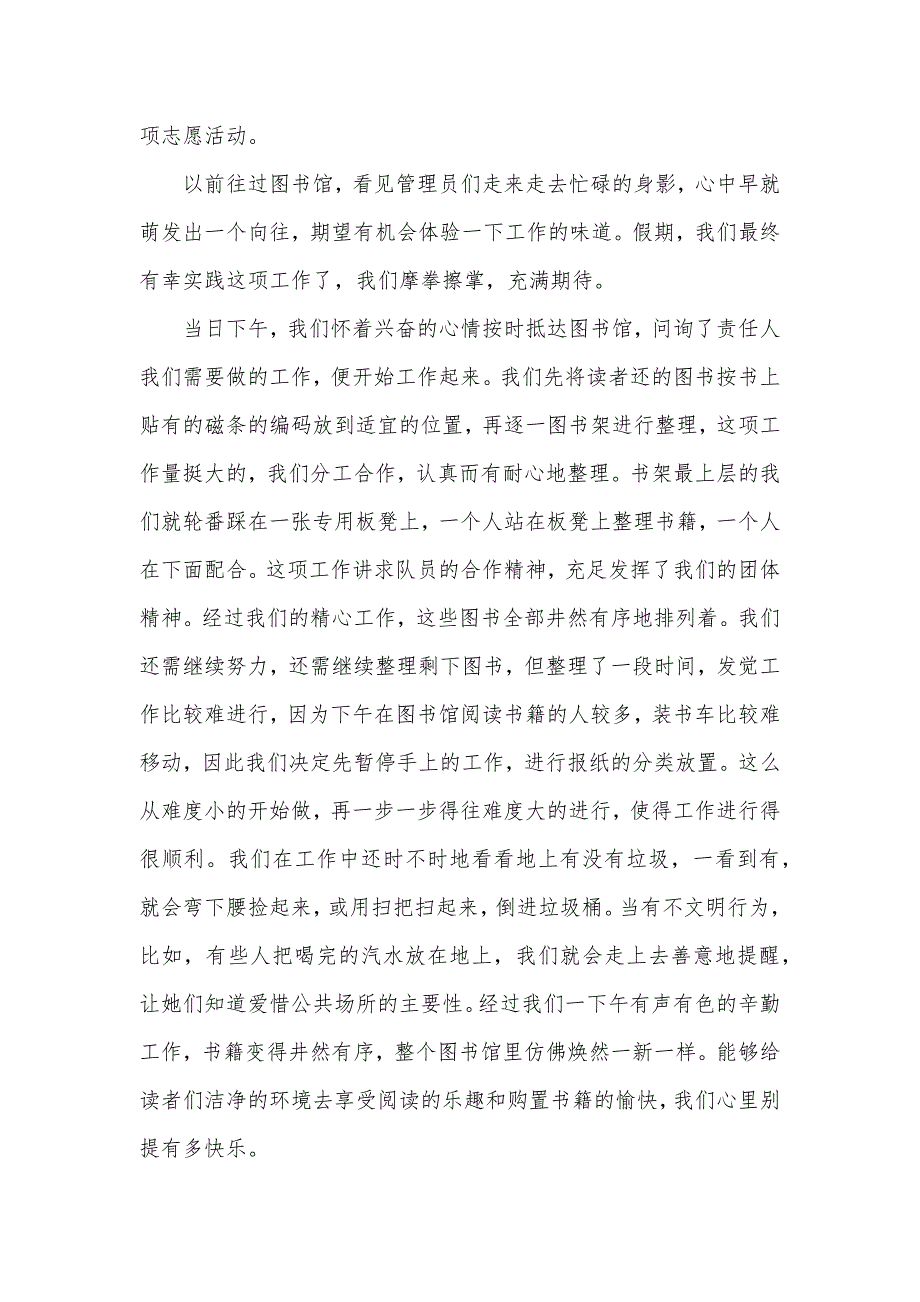 项志愿活动。
以前往过图书馆，看见管理员们走来走去忙碌的身影，心中早就
萌发出一个向往，期望有机会体验一下工作的味道。假期，我们最终
有幸实践这项工作了，我们摩拳擦掌，充满期待。
当日下午，我们怀着兴奋的心情按时抵达图书馆，问询了责任人
我们需要做的工作，便开始工作起来。我们先将读者还的图书按书上
贴有的磁条的编码放到适宜的位置，再逐一图书架进行整理，这项工
作量挺大的，我们分工合作，认真而有耐心地整理。书架最上层的我
们就轮番踩在一张专用板凳上，一个人站在板凳上整理书籍，一个人
在下面配合。这项工作讲求队员的合作精神，充足发挥了我们的团体
精神。经过我们的精心工作，这些图书全部井然有序地排列着。我们
还需继续努力，还需继续整理剩下图书，但整理了一段时间，发觉工
作比较难进行，因为下午在图书馆阅读书籍的人较多，装书车比较难
移动，因此我们决定先暂停手上的工作，进行报纸的分类放置。这么
从难度小的开始做，再一步一步得往难度大的进行，使得工作进行得
很顺利。我们在工作中还时不时地看看地上有没有垃圾，一看到有，
就会弯下腰捡起来，或用扫把扫起来，倒进垃圾桶。当有不文明行为，
比如，有些人把喝完的汽水放在地上，我们就会走上去善意地提醒，
让她们知道爱惜公共场所的主要性。经过我们一下午有声有色的辛勤
工作，书籍变得井然有序，整个图书馆里仿佛焕然一新一样。能够给
读者们洁净的环境去享受阅读的乐趣和购置书籍的愉快，我们心里别
提有多快乐。